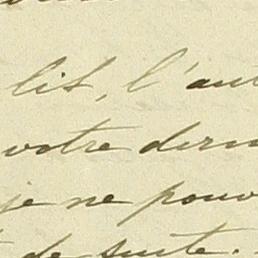 lit, l'au
votre dern
je ne pouv
de suite.